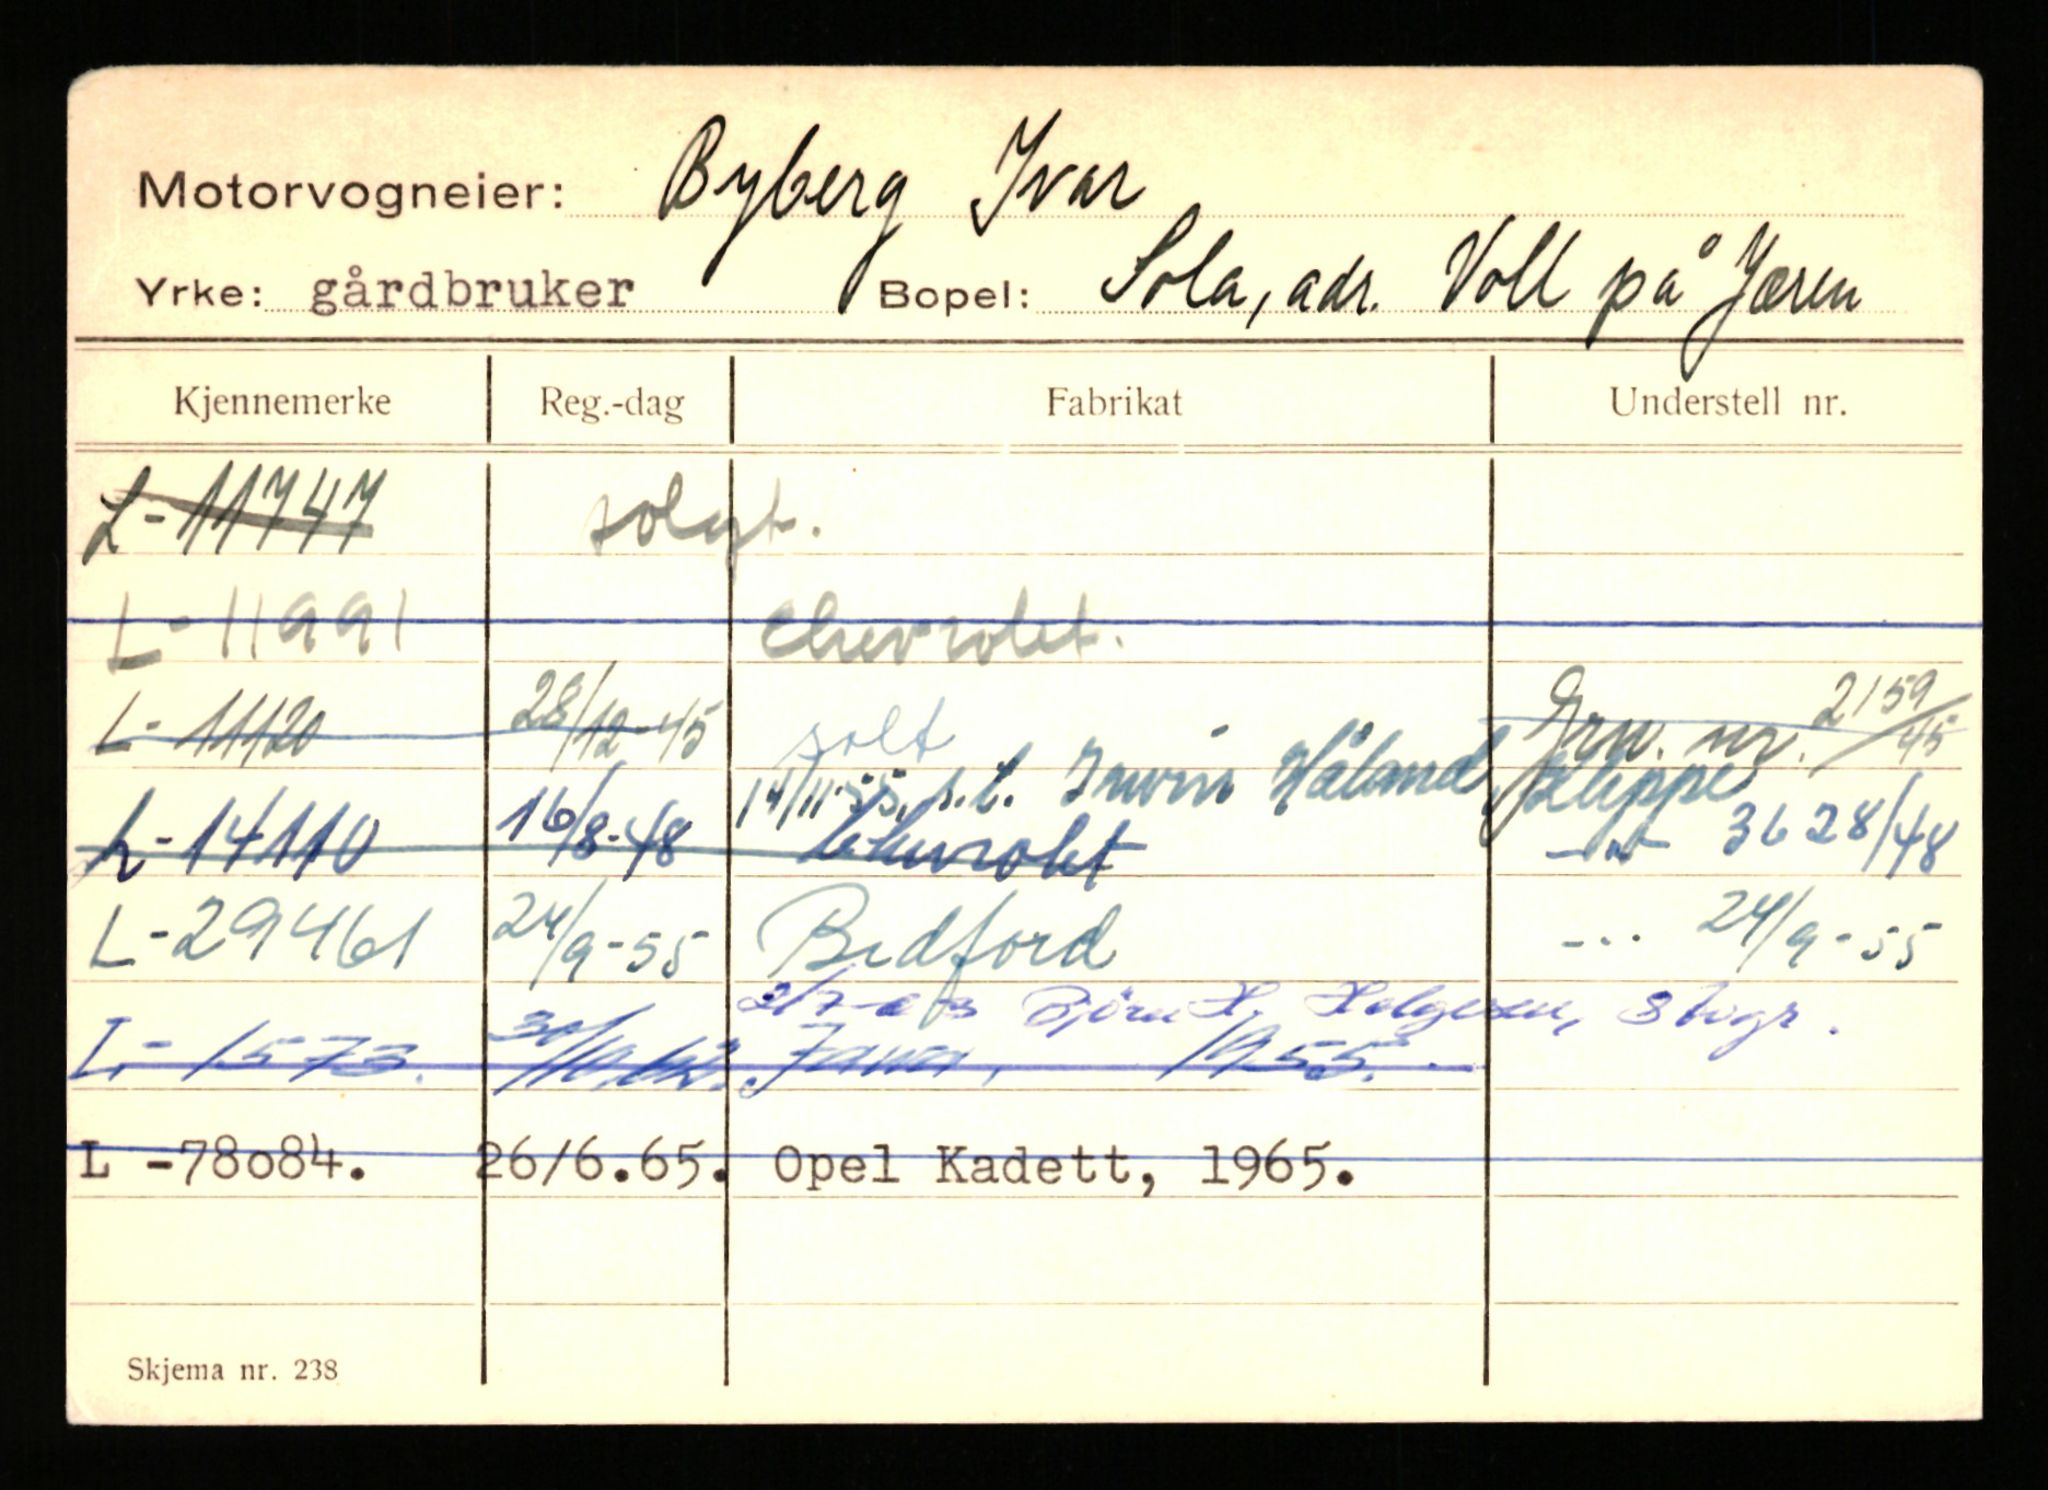 Motorvogneier: Byberg Ivar
Yrke: gårdbruker Bopel: Sola, adr. Voll på Jæren
Kjennemerke Reg.-dag Fabrikat Understell nr.
L-11747 solgt.
L-11991 Chevrolet.
L-11120 28/12-45 solt Grw. nr. 2159/45
14/11-55 s.t. Håland Kleppe
L-14110 16/8-48 Chevrolet -"- 3628/48
L-29461 24/9-55 Bedford --- 24/9-55
Bjørn H. Helgesen,
L-1573. Jawa, 1955.
L -78084. 26/6.65. Opel Kadett, 1965.
Skjema nr. 238